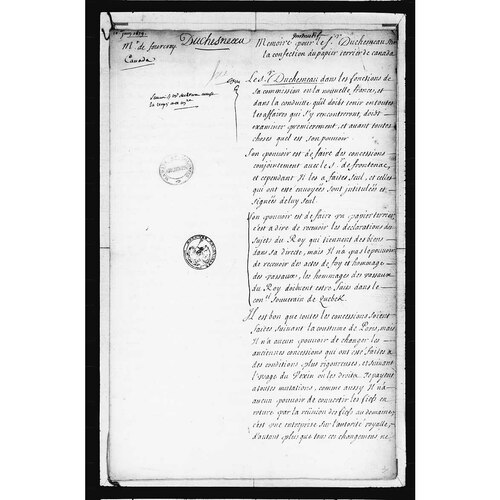 Mr. de fourcroy
Canada
Duchesneau
Memoire pour le Sr. Duchesneau Sur
la confection du papier terrier de canada
Le Sr. Duchesneau dans les fonctions de
sa commission en la nouvelle france, et
dans la conduitte quil doibt tenir en toutes
les affaires qui s'y rencontreront, doibt
examiner premierement, et auant toutes
choses quel est son pouuoir
Son pouuoir est de faire des concessions
conjointement auec le Sr. de frontenac,
et cependant Il les a faites seul, et celles
qui ont esté enuoyées sont intitulées et
signées de luy seul.
Son pouuoir est de faire un papier terrier,
c'est a dire de receuoir les declarations des
sujets du Roy qui tiennent des biens
dans sa directe, mais Il n'a pas le pouuoir
de receuoir des actes de foy et hommage
des vassaux, les hommages des vassaux
du Roy doibuent estre faits dans le
conel. Souuerain de Quebek.
Il est bon que toutes les concessions soient
faites suiuant la coustume de Paris, mais
Il n'a aucun pouuoir de changer les
anciennes concessions qui ont esté faites a
des conditions plus rigoureuses, et suiuant
l'vsage du Vexin où les droits se payent
a toutes mutations, comme aussy Il n'a
aucun pouuoir de conuertir les fiefs en
roture par la réünion des fiefs au domaine,
c'est une entreprise sur l'autorité royalle,
d'autant plus que tous ces changemens ne